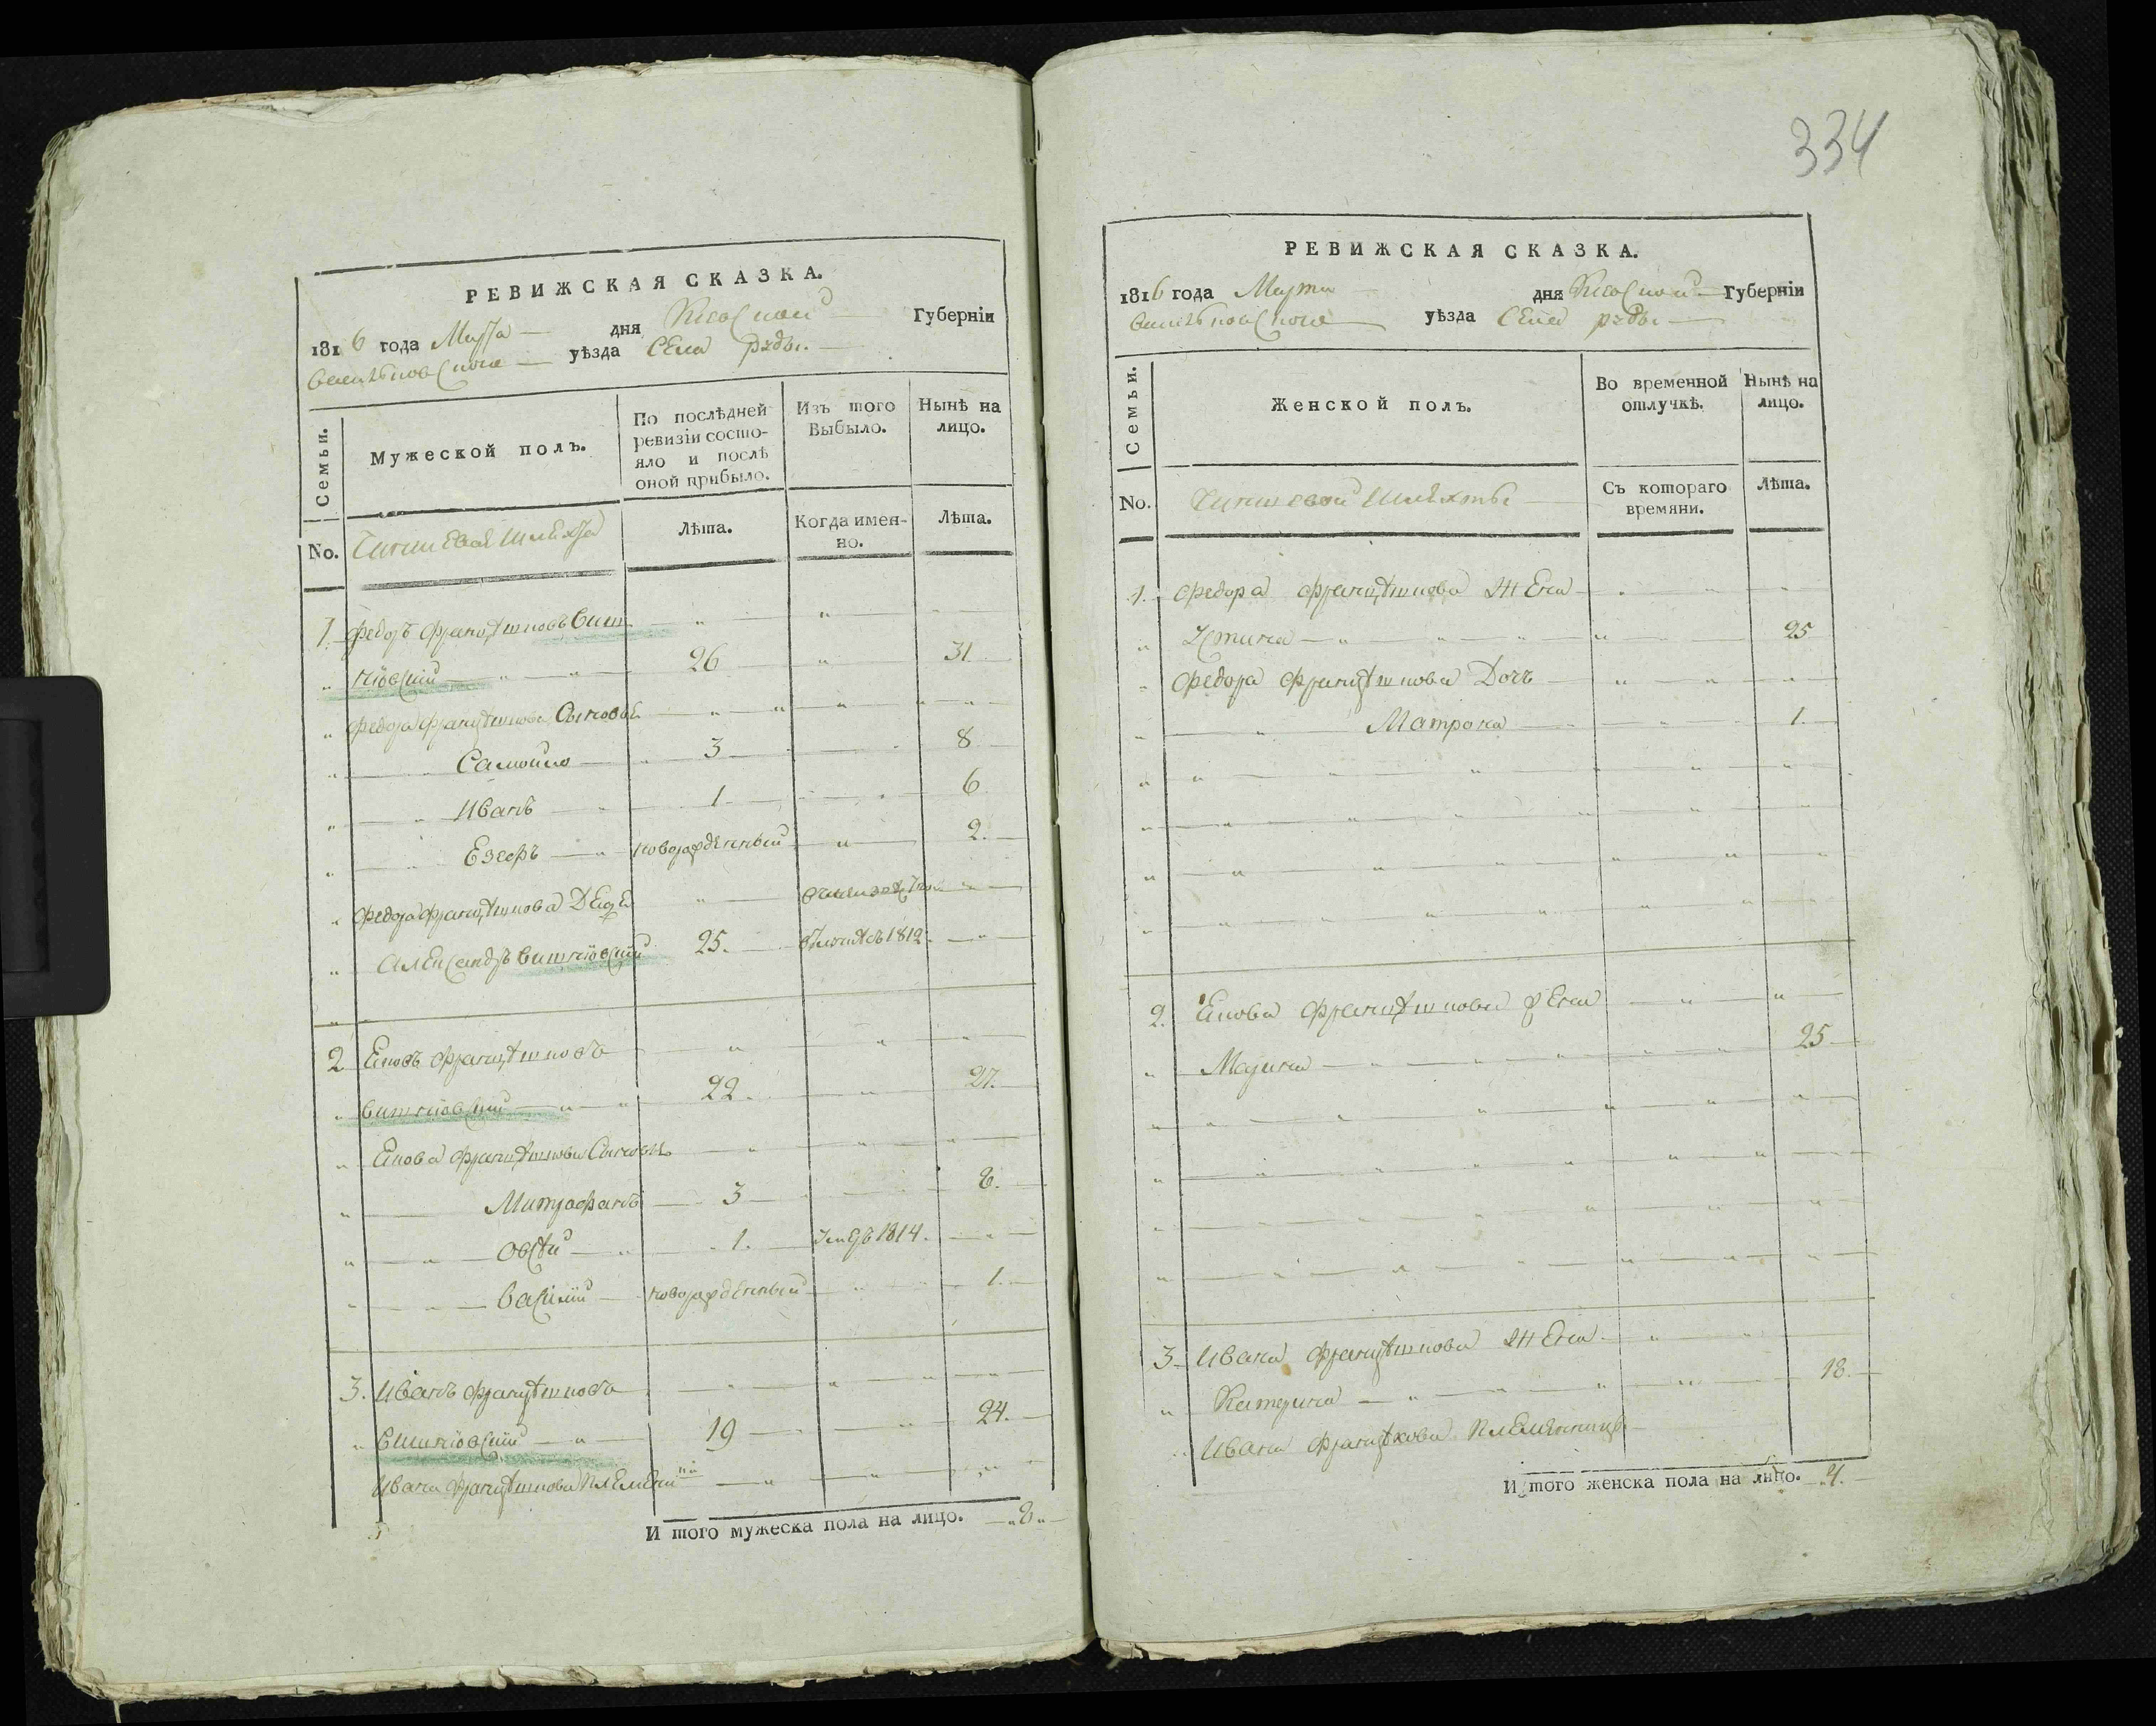 РЕВИЖСКАЯ СКАЗКА.
1816 года Марта дня Киевской Губерніи
Васильковского уѣзда Села рѣды.
Семьи.
Мужеской полъ.
По послѣдней ревизіи состо-
яло и послѣ
оной прибыло.
Изъ того
Выбыло.
Нынѣ на
лицо.
No.
Чиншевая Шляхта
Лѣта.
Когда имен-
но.
Лѣта.
1. Федоръ Францишковъ Виш
нiовскiй 26 31.
Федора Францишкова Сыновья
Самойло 3 8
Иванъ 1 6
Езефъ новорожденный 2.
Федора Францишкова
Александръ Вишнiовскiй 25. 1812.
2 Яковъ Францишковъ
Вишнiовскiй 22. 27.
Якова Францишкова Сыновья
Митрофанъ 3 8.
1. Умеръ 1814.
Василiй новорожденный 1.
3. Иванъ Францишковъ
Вишнiовскiй 19 24.
Ивана Францишкова Племенни
ки
И того мужеска пола на лицо. 8
334
РЕВИЖСКАЯ СКАЗКА.
1816 года Марта дня Киевской Губерніи
Васильковского уѣзда Села рѣды
Семьи.
Женской полъ.
Во временной
отлучкѣ.
Нынѣ на
лицо.
No.
Чиншевой Шляхты
Съ котораго
времяни.
Лѣта.
1. Федора Францишкова Жена
Устина 25
Федора Францишкова Дочь
Матрона 1.
2. Якова Францишкова Жена
Марина 25
3. Ивана Францишкова Жена
Катерина 18.
Ивана Францишкова Племенница
И того женска пола на лицо. 4.